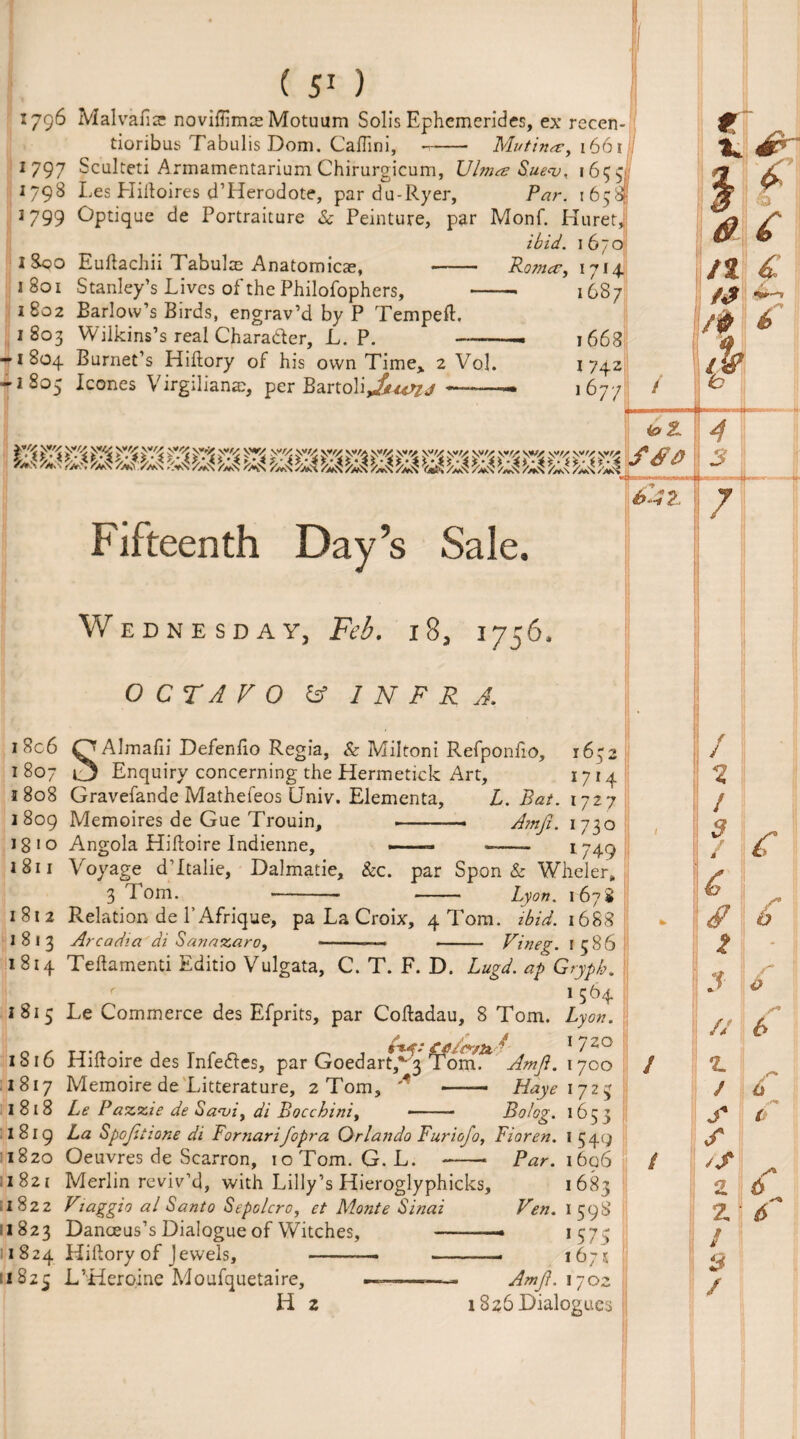 ( 51 )
1796 Malvasiæ novissimæ Motuum Solis Ephemerides, ex recen-
tioribus Tabulis Dom. Cassini, —— Mutinæ, 1661
1797 Sculteti Armamentarium Chirurgicum, Ulmæ Suev. 1655
1798 Les Histoires d'Herodote, par du-Ryer, Par. 1658
1799 Optique de Portraiture & Peinture, par Mons. Huret,
ibid. 1670
1800 Eustachii Tabulæ Anatomicæ, —— Romæ, 1714
1801 Stanley's Lives of the Philosophers, —— 1687
1802 Barlow's Birds, engrav'd by P Tempest.
1803 Wilkins's real Character, L. P. —— 1668
1804 Burnet's History of his own Time, 2 Vol. 1742
1805 Icones Virgilianæ, per Bartoli, —— 1677
Fifteenth Day's Sale.
WEDNESDAY, Feb. 18, 1756.
OCTAVO & INFRA.
1806 SAlmasii Defensio Regia, & Miltoni Responsio, 1652
1807 Enquiry concerning the Hermetick Art, 1714
1808 Gravesande Matheseos Univ. Elementa, L. Bat. 1727
1809 Memoires de Gue Trouin, —— Amst. 1730
1810 Angola Histoire Indienne, —— —— 1749
1811 Voyage d'Italie, Dalmatie, &c. par Spon & Wheler,
3 Tom. —— —— Lyon. 1678
1812 Relation de l'Afrique, pa La Croix, 4 Tom. ibid. 1688
1813 Arcadia di Sanazaro, —— —— Vineg. 1586
1814 Testamenti Editio Vulgata, C. T. F. D. Lugd. ap Gryph.
1564
1815 Le Commerce des Esprits, par Costadau, 8 Tom. Lyon.
1720
1816 Histoire des Insectes, par Goedart, 3 Tom. Amst. 1700
1817 Memoire de Litterature, 2 Tom, —— Haye 1725
1818 Le Pazzie de Savi, di Bocchini, —— Bolog. 1653
1819 La Spositione di Fornari sopra Orlando Furioso, Fioren. 1549
1820 Oeuvres de Scarron, 10 Tom. G. L. —— Par. 1696
1821 Merlin reviv'd, with Lilly's Hieroglyphicks, 1683
1822 Viaggio al Santo Sepolcro, et Monte Sinai Ven. 1598
1823 Danœus's Dialogue of Witches, —— 1575
1824 History of Jewels, —— —— 1671
1825 L'Heroine Mousquetaire, —— Amst. 1702
H 2 1826 Dialogues